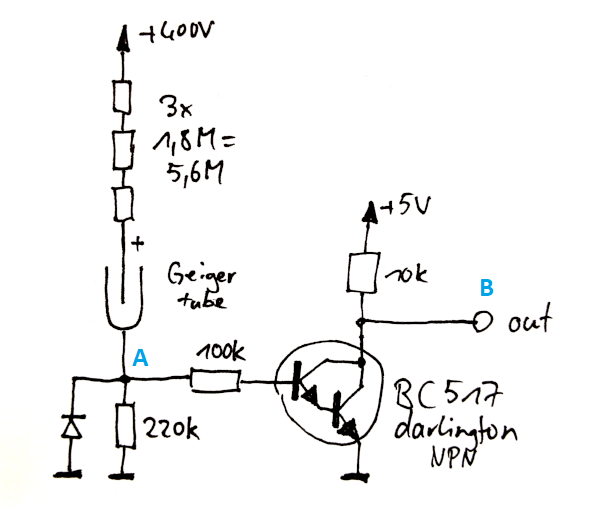 +400V
3x
1,8M=
5,6M
+
Geiger
tube
A
100k
220k
+5V
10k
B
out
BC517
darlington
NPN